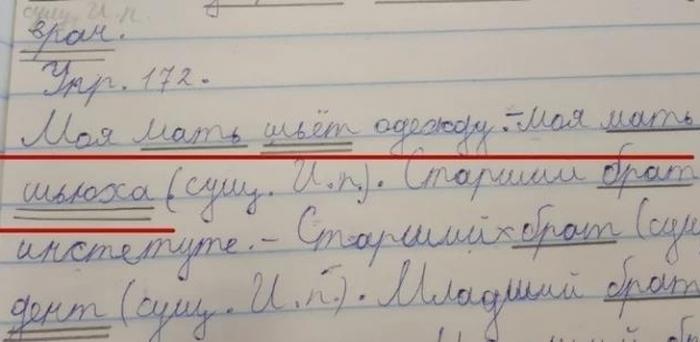 сущ. И.п.
врач.
Упр. 172.
Моя мать шьёт одежду. - Моя мать
шьюха (сущ. И.п.). Старший брат
инстетуте. - Старший брат (сущ
дент (сущ. И.п.). Младший брат